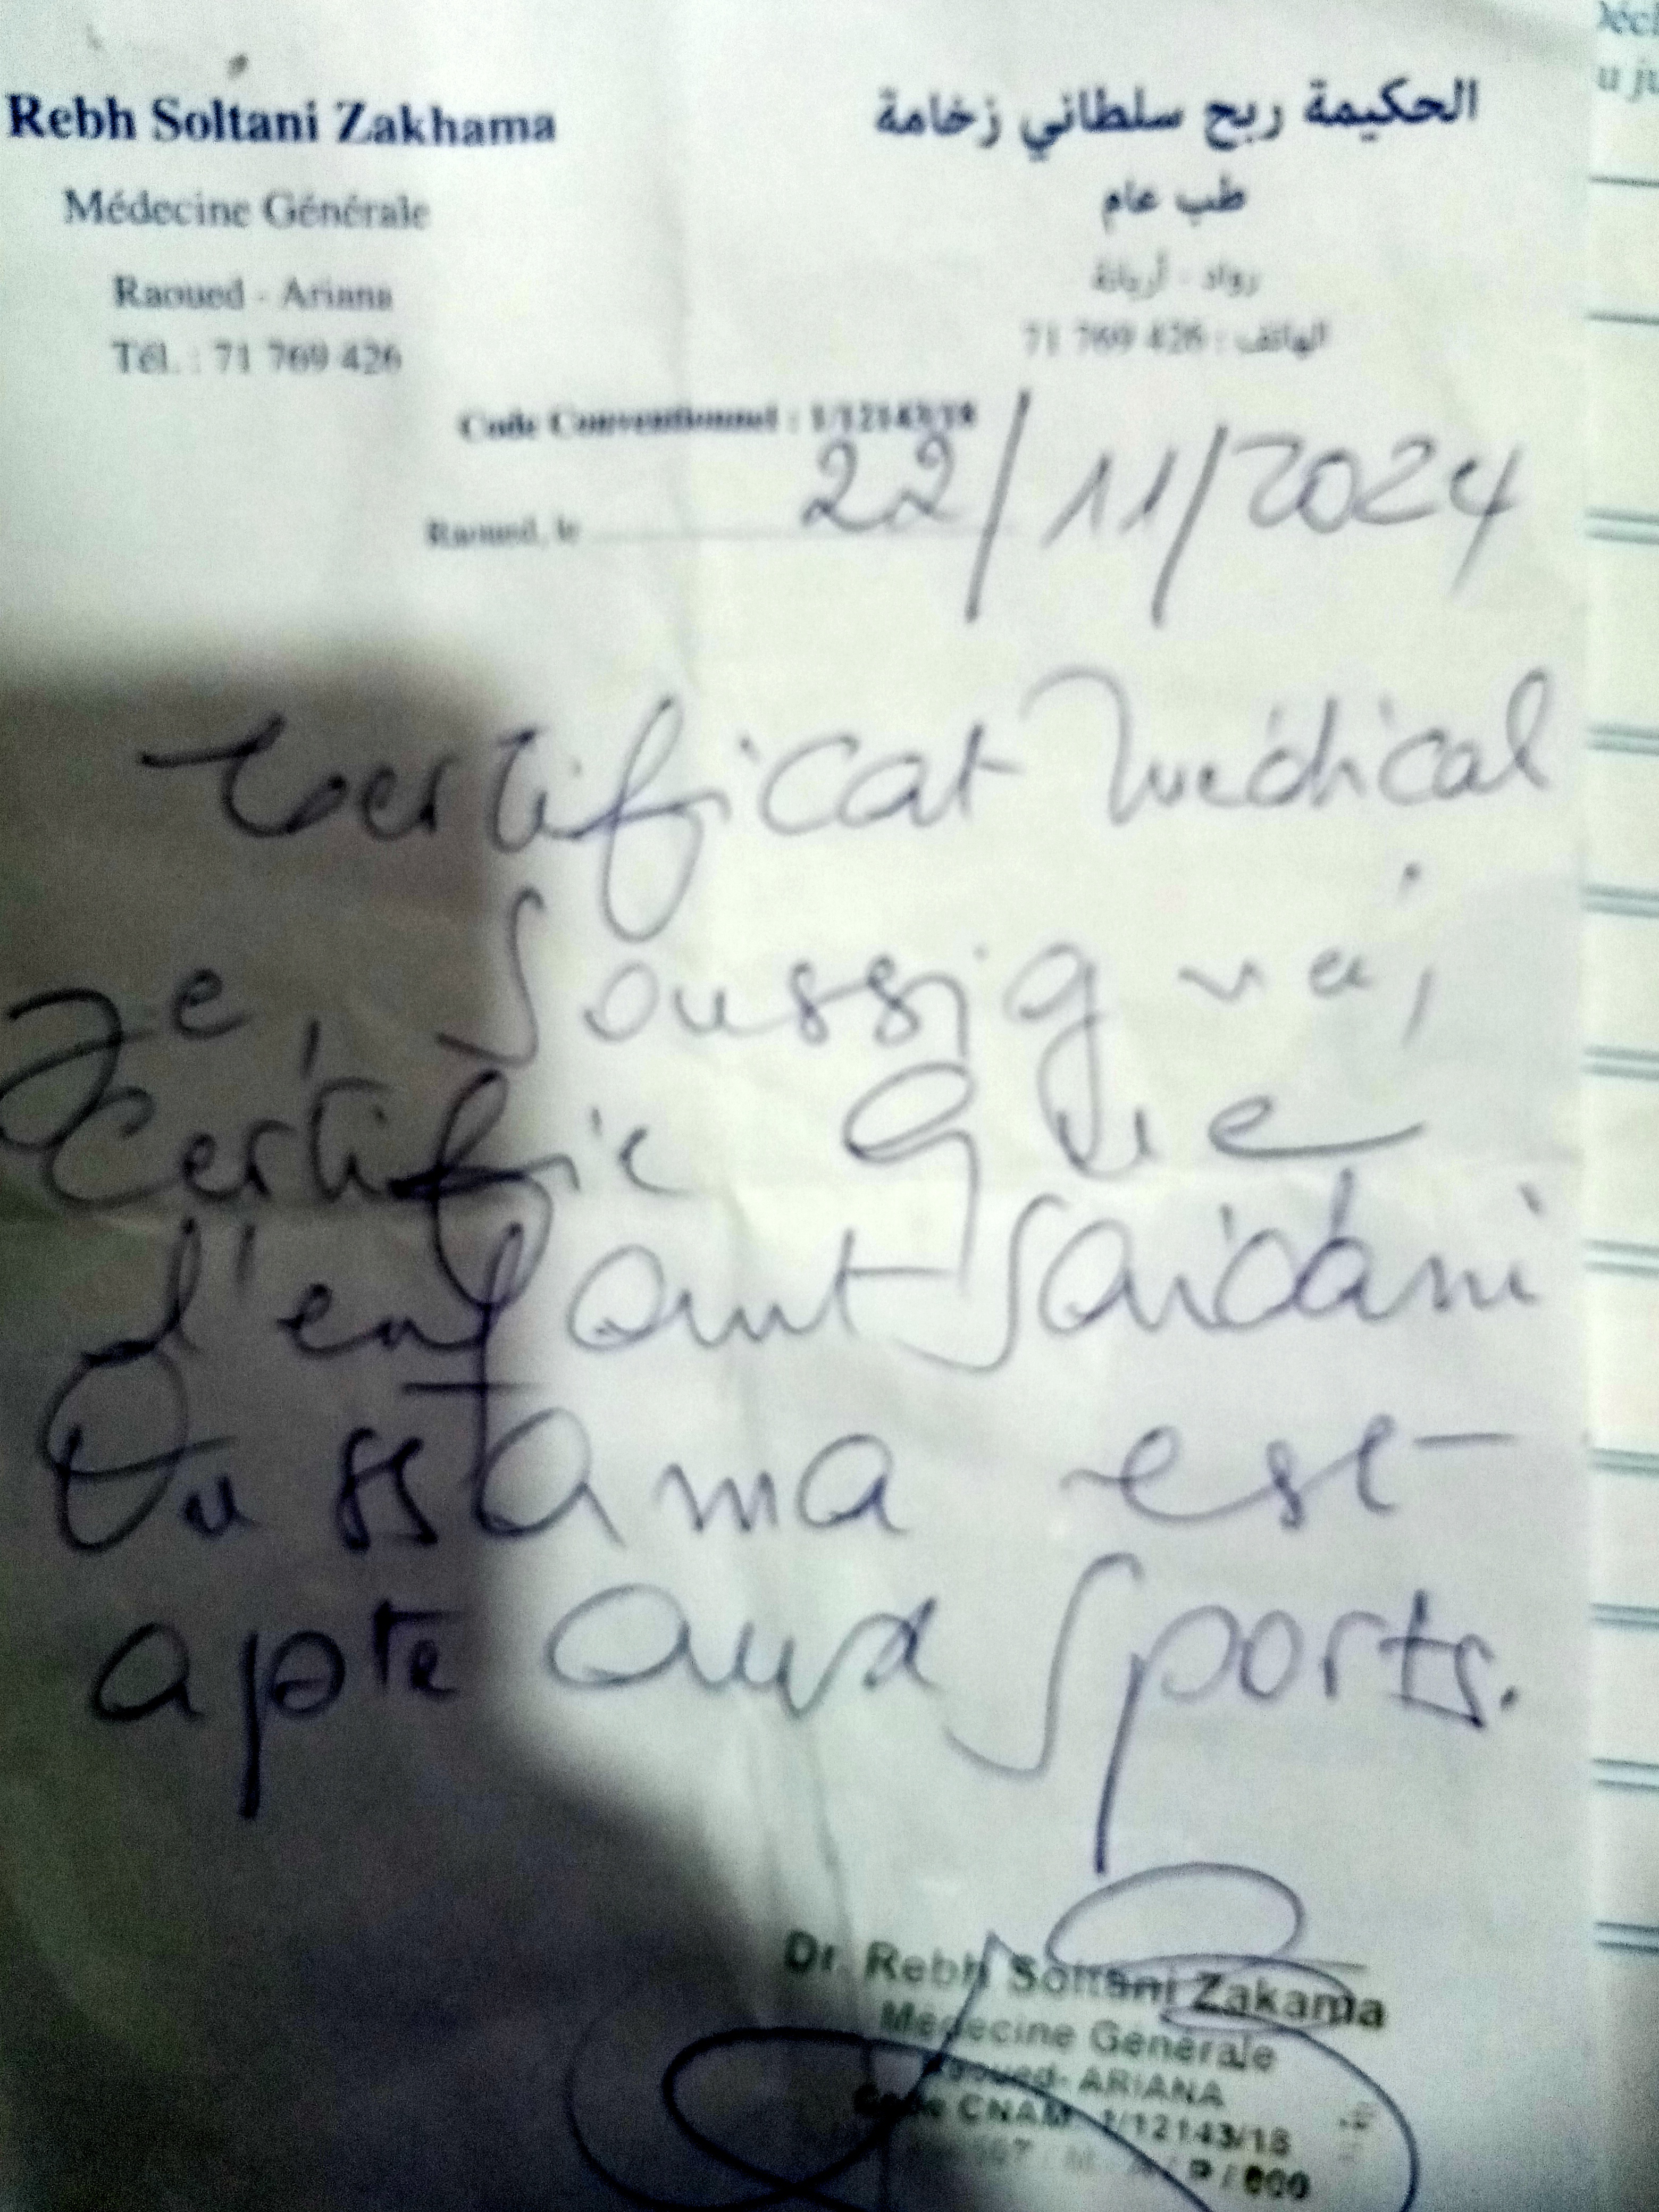 Rebh Soltani Zakhama
Médecine Générale
Raoued - Ariana
Tél. : 71 769 426
الحكيمة ربح سلطاني زخامة
طب عام
رواد - أريانة
الهاتف : 426 769 71
Code Conventionnel : 1/12143/18
Raoued, le 22/11/2024
Certificat Médical
Je, Soussigné,
Certifie que
l'enfant Saidani
Oussama est
apte aux sports.
Dr. Rebh Soltani Zakama
Médecine Générale
Raoued- ARIANA
Code CNAM 1/12143/18
/ 000